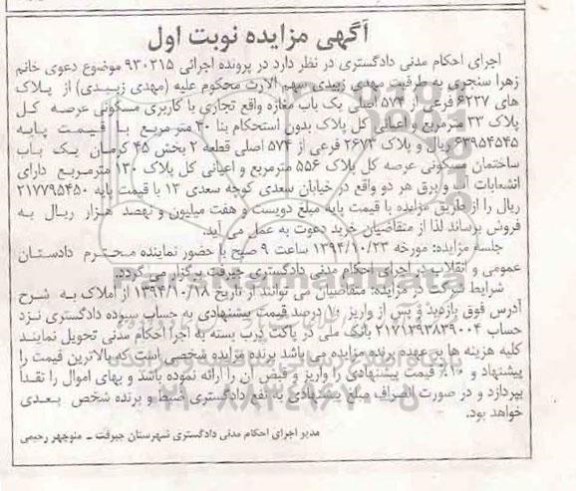 آگهی مزایده نوبت اول
اجرای احکام مدنی دادگستری در نظر دارد در پرونده اجرائی ۹۳۰۲۱۵ موضوع دعوی خانم
زهرا سنجری به طرفیت مهدی زبیدی سهم الارث محکوم علیه (مهدی زبیدی) از پلاک
های ۶۲۳۷ فرعی از ۵۷۴ اصلی یک باب مغازه واقع تجاری با کاربری مسکونی عرصه کل
پلاک ۳۳ مترمربع و اعیانی کل پلاک بدون استحکام بنا ۳۰ متر مربع با قیمت پایه
۶۳۹۵۴۵۴۵ ریال و پلاک ۲۶۷۳ فرعی از ۵۷۴ اصلی قطعه ۲ بخش ۴۵ کرمان یک باب
ساختمان مسکونی عرصه کل پلاک ۵۵۶ مترمربع و اعیانی کل پلاک ۱۳۰ مترمربع دارای
انشعابات آب و برق هر دو واقع در خیابان سعدی کوچه سعدی ۱۳ با قیمت پایه ۲۱۷۷۹۵۴۵۰
ریال را از طریق مزایده با قیمت پایه مبلغ دویست و هفت میلیون و نهصد هزار ریال به
فروش برساند لذا از متقاضیان خرید دعوت به عمل می آید.
جلسه مزایده: مورخه ۱۳۹۴/۱۰/۲۳ ساعت ۹ صبح با حضور نماینده محترم دادستان
عمومی و انقلاب در اجرای احکام مدنی دادگستری جیرفت برگزار می گردد.
شرایط شرکت در مزایده: متقاضیان می توانند از تاریخ ۱۳۹۴/۱۰/۱۸ از املاک به شرح
آدرس فوق بازدید و پس از واریز ۱۰ درصد قیمت پیشنهادی به حساب سپرده دادگستری نزد
حساب ۲۱۷۱۲۹۳۸۳۹۰۰۴ بانک ملی در پاکت درب بسته به اجرا احکام مدنی تحویل نمایند
کلیه هزینه ها بر عهده برنده مزایده می باشد برنده مزایده شخصی است که بالاترین قیمت را
پیشنهاد و ۱۰٪ قیمت پیشنهادی را واریز و فیش آن را ارائه نموده باشد و بهای اموال را نقداً
بپردازد و در صورت انصراف مبلغ پیشنهادی به نفع دادگستری ضبط و برنده شخص بعدی
خواهد بود.
مدیر اجرای احکام مدنی دادگستری شهرستان جیرفت ـ منوچهر رحیمی